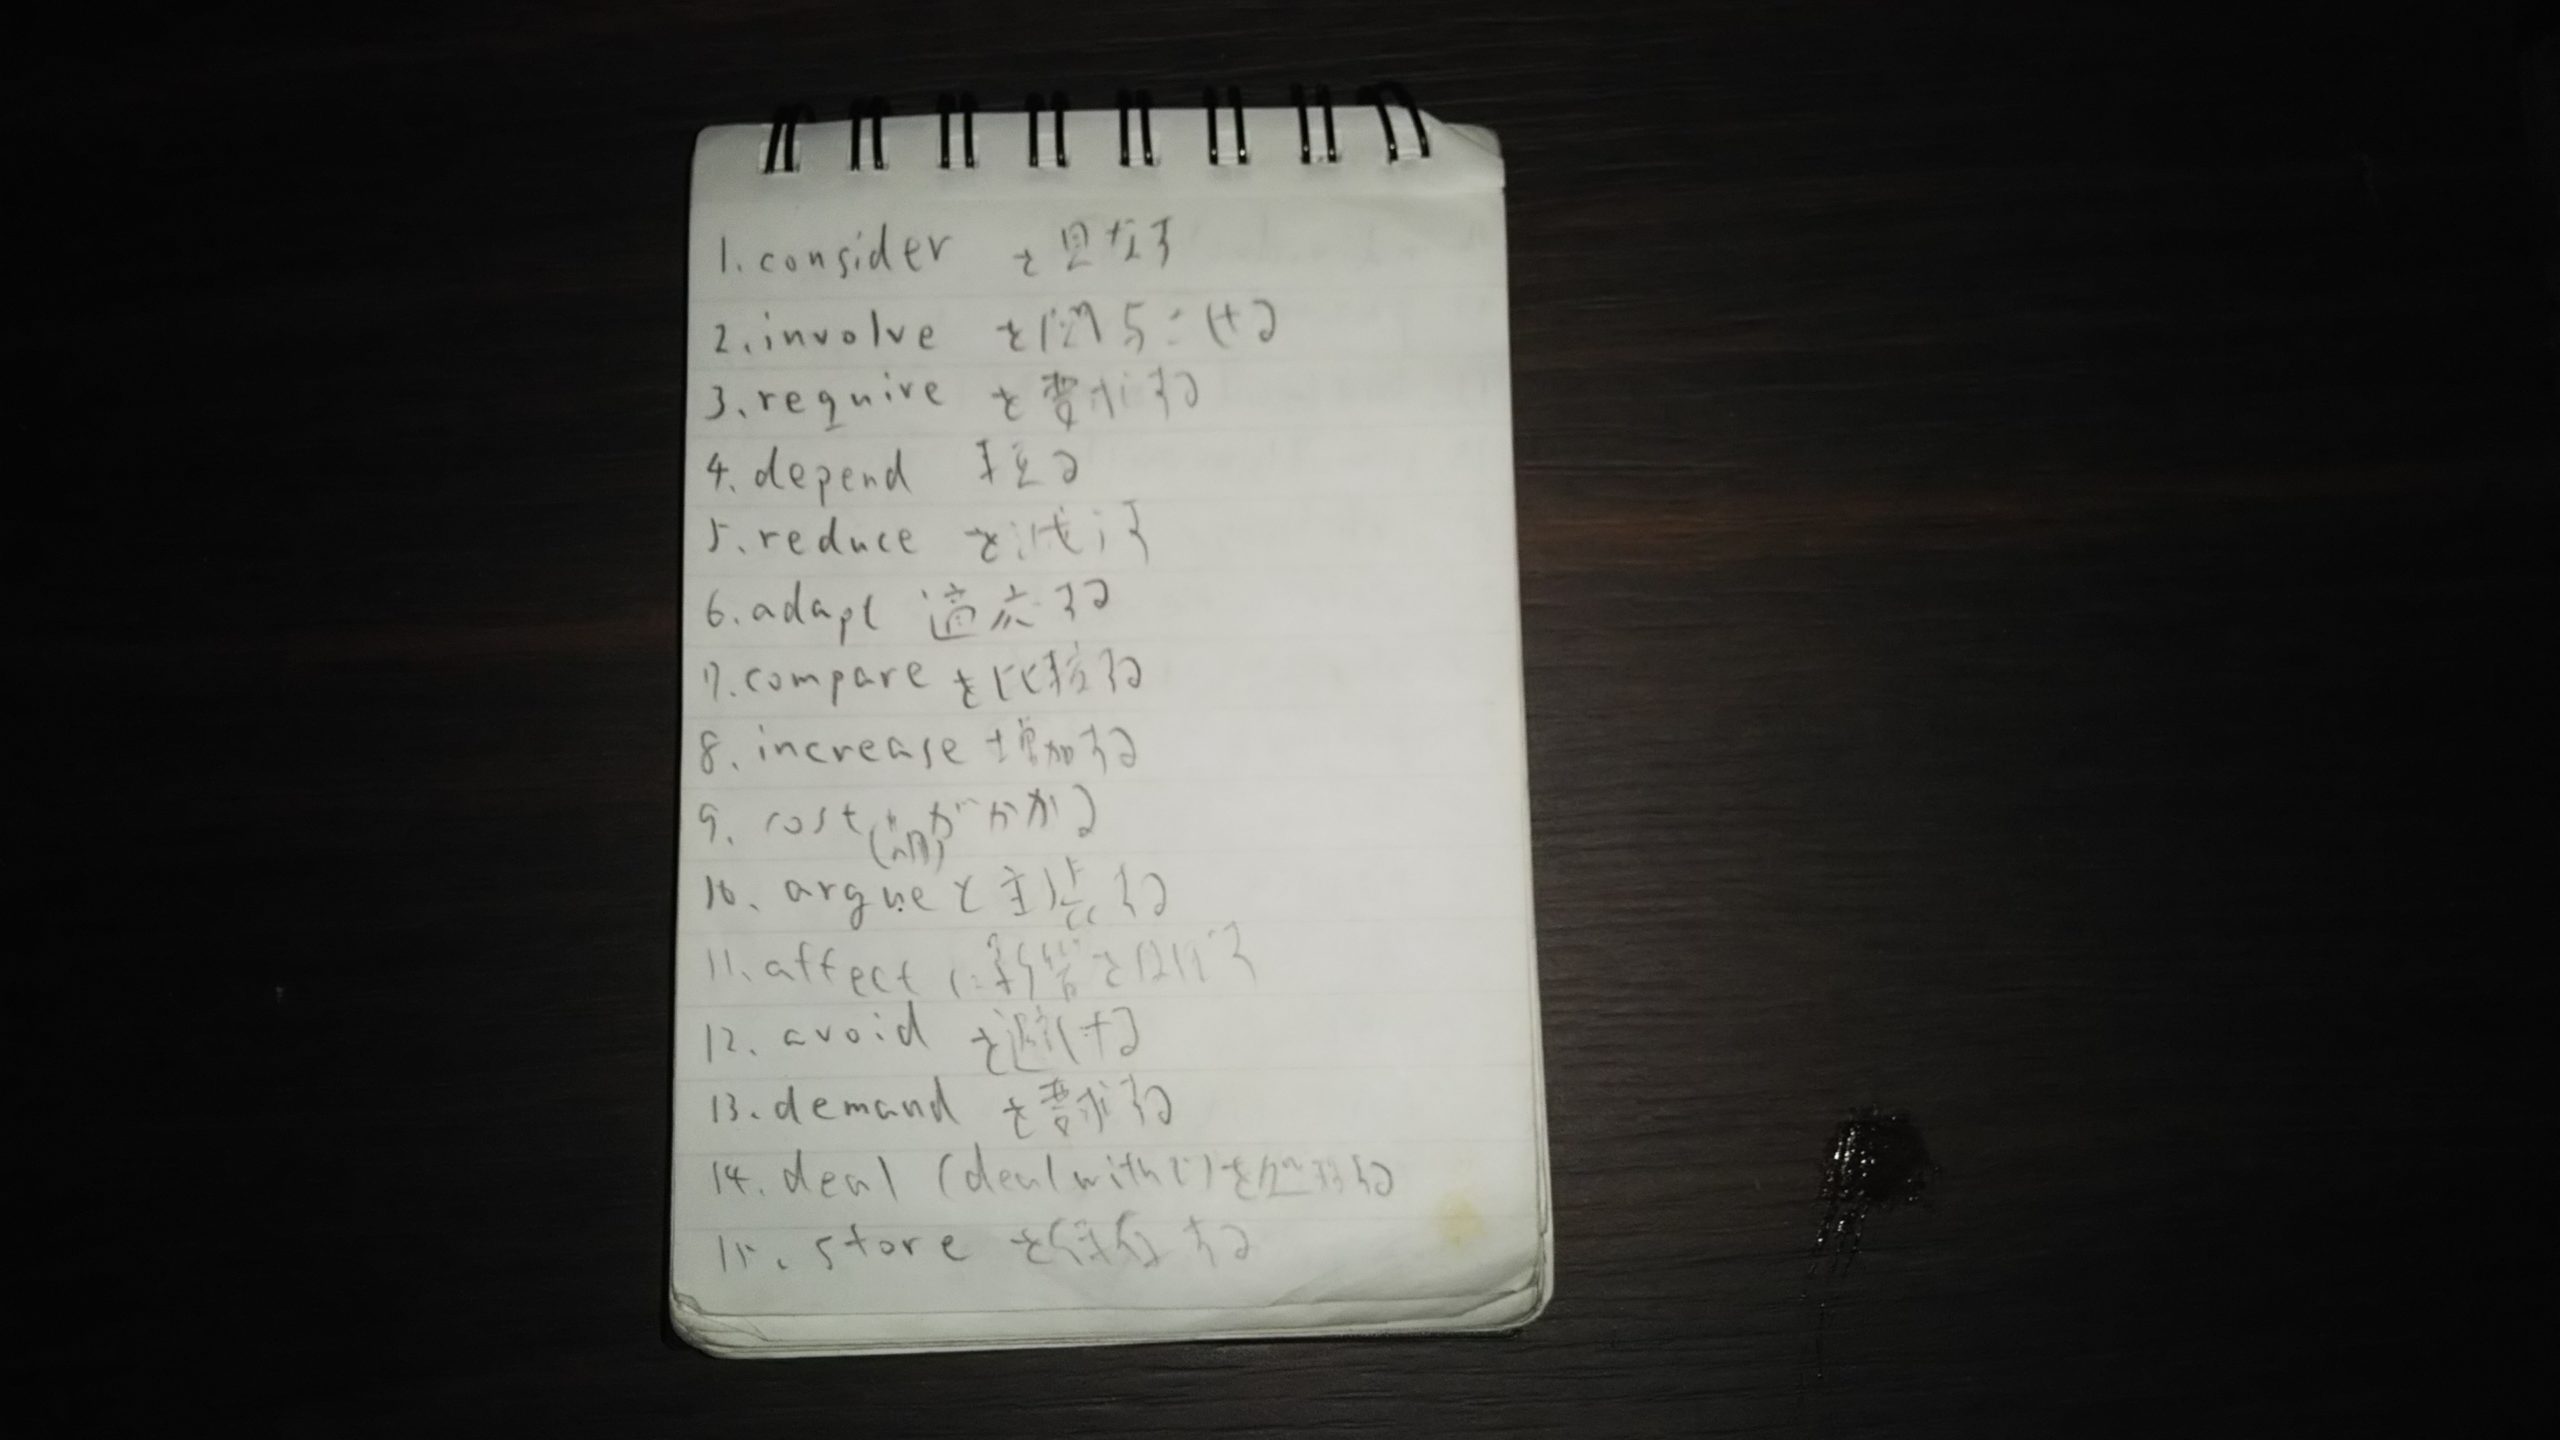 1. consider を見なす
2. involve を関らせる
3. require を要求する
4. depend 頼る
5. reduce を減らす
6. adapt 適応する
7. compare を比較する
8. increase 増加する
9. cost がかかる
10. argue と主張する
11. affect に影響を及ぼす
12. avoid を避ける
13. demand を要求する
14. deal (deal with で) を処理する
15. store を保存する